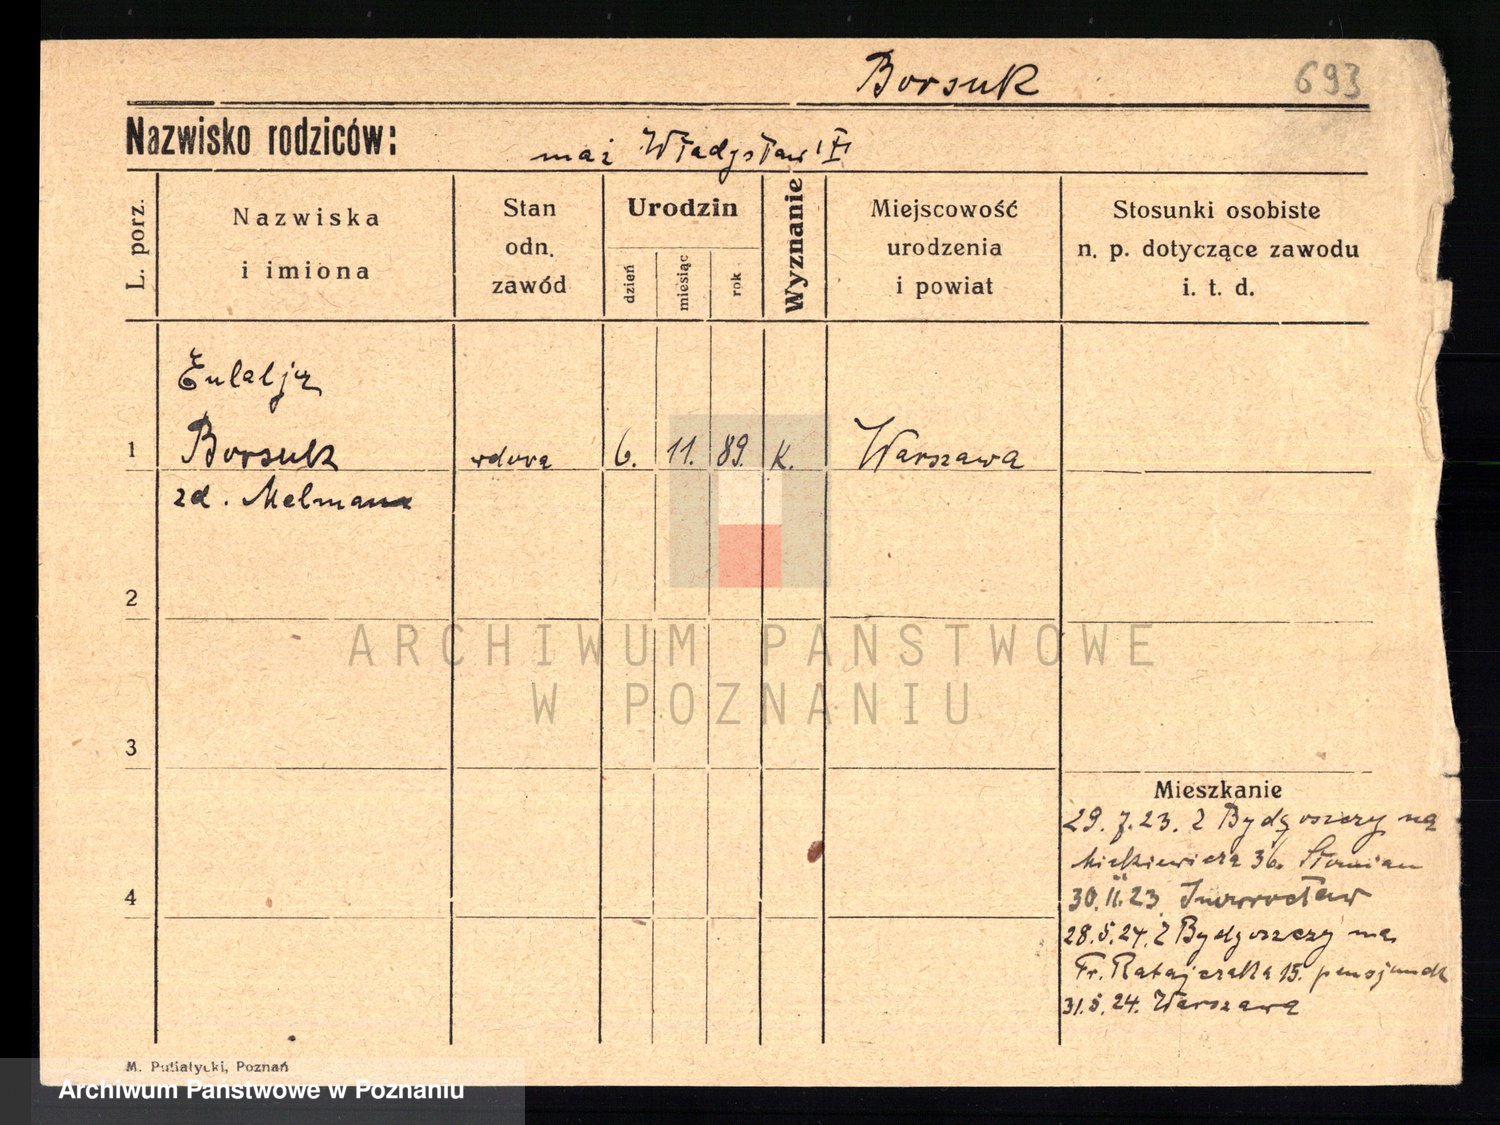 Borsuk 693
Nazwisko rodziców: mąż Władysław
L. porz.
Nazwiska
i imiona
Stan
odn.
zawód
Urodzin
dzień
miesiąc
rok
Wyznanie
Miejscowość
urodzenia
i powiat
Stosunki osobiste
n. p. dotyczące zawodu
i. t. d.
Eulalja
1 Borsuk wdowa 6. 11. 89. K. Warszawa
zd. Melman
2
ARCHIWUM PAŃSTWOWE
W POZNANIU
3
Mieszkanie
29. 7. 23. z Bydgoszczy na
Mickiewicza 36.
4 30. 11. 23 Inowrocław
28. 5. 24. z Bydgoszczy na
Fr. Ratajczaka 15.
31. 5. 24. Warszawa
M. Putiatycki, Poznań
Archiwum Państwowe w Poznaniu